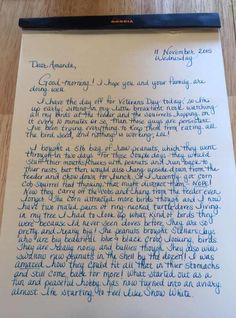 RHODIA
11 November 2015
Wednesday
Dear Amanda,
Good-morning! I hope you and your family are
doing well.
I have the day off for Veterans Day today, so I'm
up early, sitting in my little breakfast nook watching
all my birds at the feeder and the squirrels hopping on
it every 10 minutes or so. Man those guys are persistent.
I've been trying everything to keep them from eating all
the bird seed, and nothing is working.
I bought a 5lb bag of raw peanuts, which they went
through in two days. For those couple days they would
stuff their mouths with peanuts and run back to
their nests but then would also hang upside down from the
feeder and chow down for lunch. So I recently got corn
cob squirrel food thinking that might distract them. NOPE!
Now they carry off the cobs and chomp from the feeder even
longer. The corn attracted more birds though and I now
have two mated pairs of ring-necked turtledoves living
in my tree. I had to look up what kind of birds they
were because I'd never seen doves before. They are so
pretty and really big! The peanuts brought Stellar's Jays
who are big beautiful blue & black crow looking birds.
They are really noisy and bullies though. They also will
swallow raw peanuts in the shell by the dozen! I was
amazed how they could fit all that in their stomachs
and still come back for more! What started out as a
fun and peaceful hobby has now turned into an aviary
almost. I'm starting to feel like Snow White.